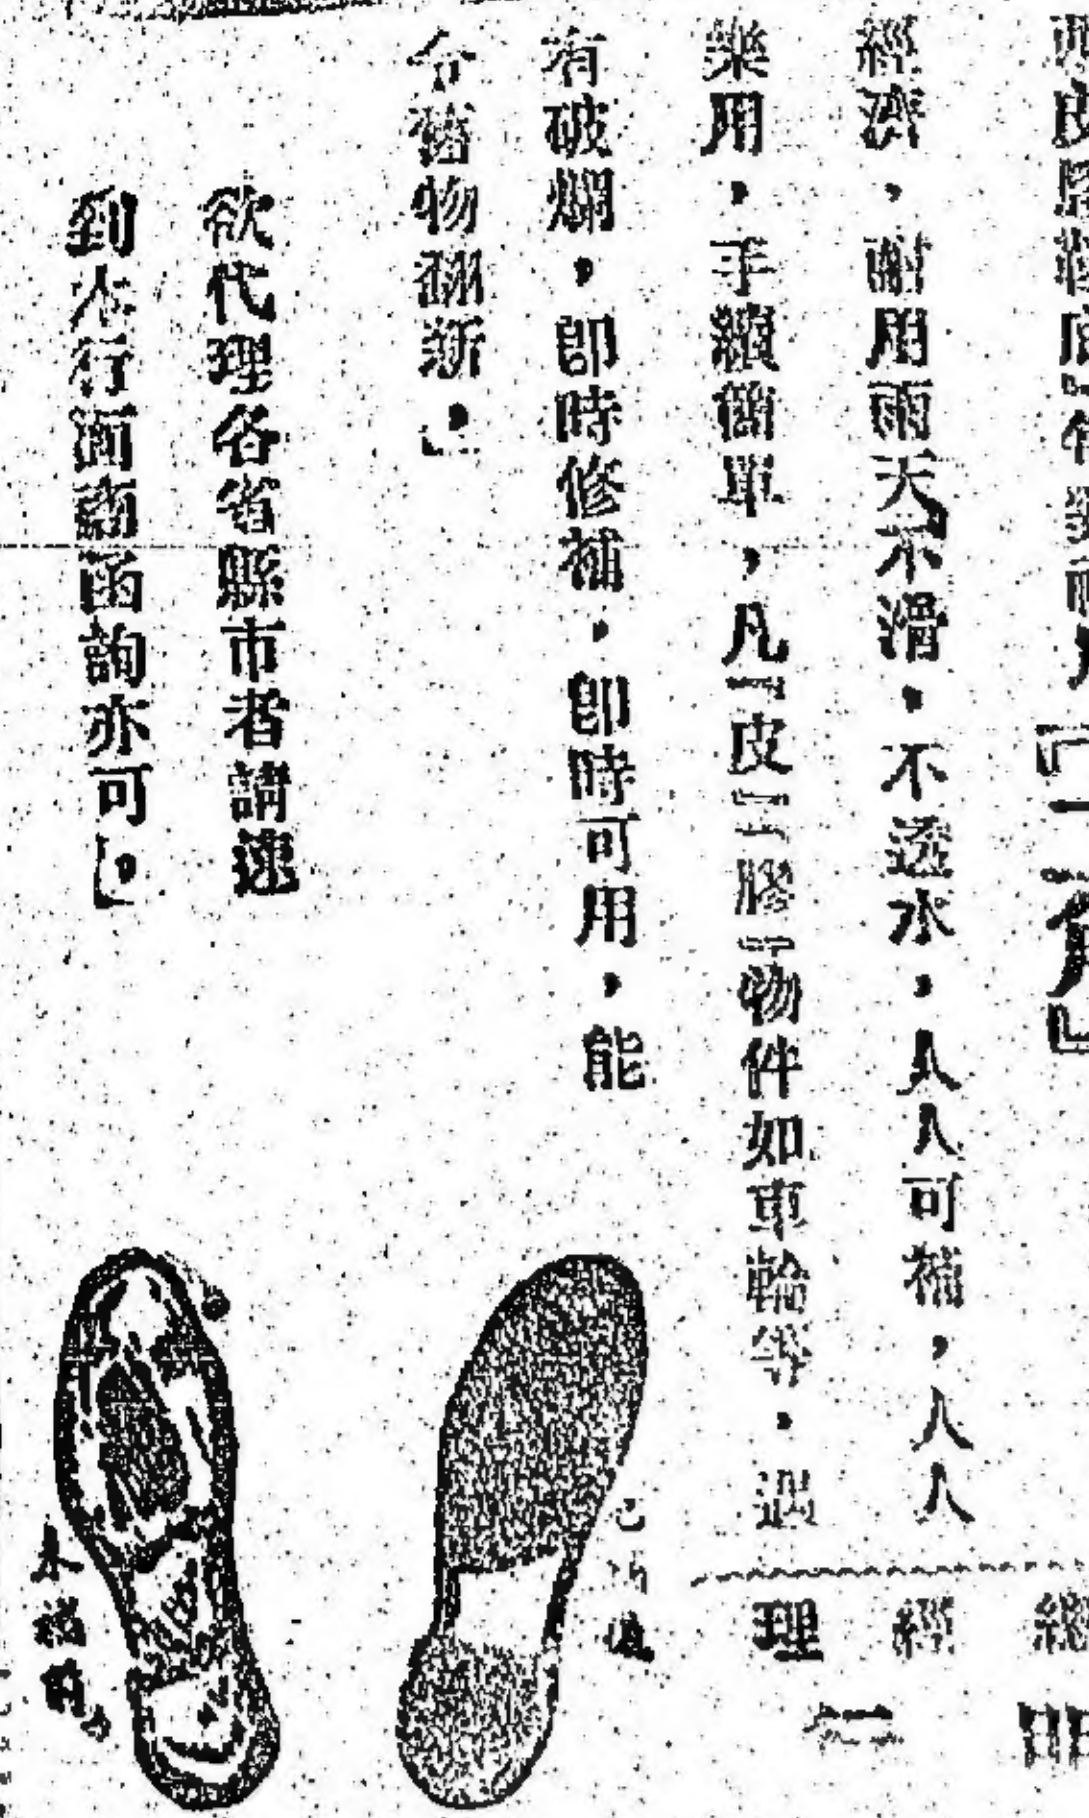 經濟，耐用雨天不滑，不透水，人人可補，人人
樂用，手續簡單，凡「皮」「膠」物件如車輪等，遇
有破爛，即時修補，即時可用，能
令舊物翻新。」
欲代理各省縣市者請速
到本行面商函詢亦可」。
總
經
理
已補過
未補前。